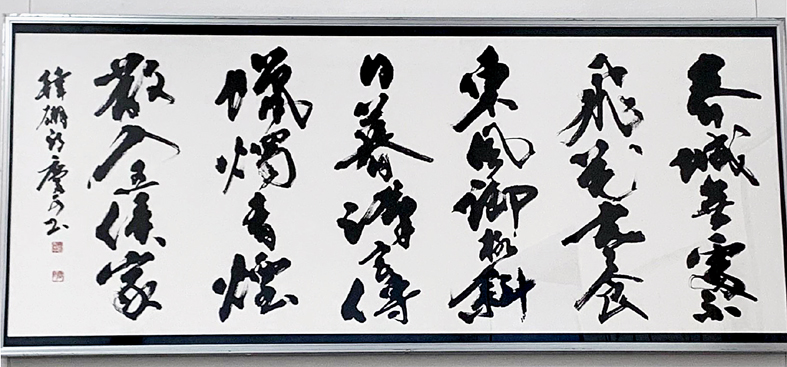 春城無處不
飛花寒食
東風御柳斜
日暮漢宮傳
蠟燭青煙
散入五侯家
韓翃詩慶書